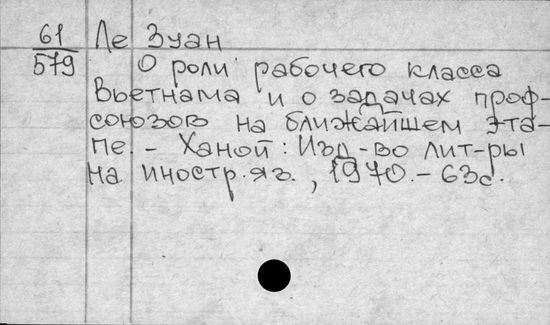 61 Ле Зуан
579
О роли рабочего класса
Вьетнама и о задачах проф-
союзов на ближайшем эта-
пе. - Ханой: Изд-во лит-ры
на иностр. яз., 1970. - 63с.